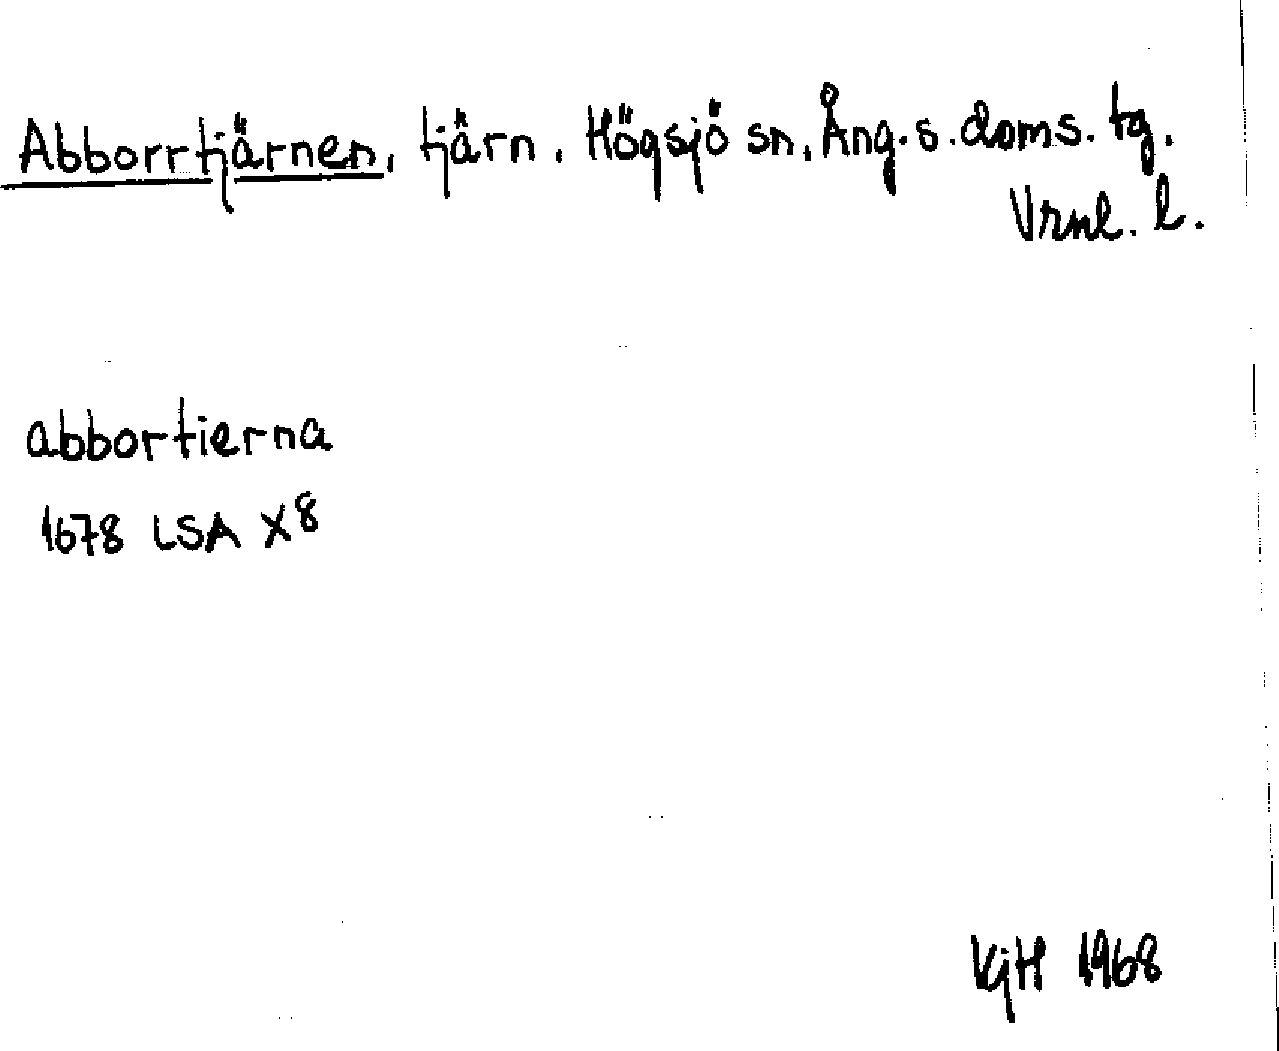 Abborrtjärnen, tjärn, Högsjö sn, Ång. s. doms. tg.
Vrnl. l.
abbortierna
1678 LSA X8
KjH 1968